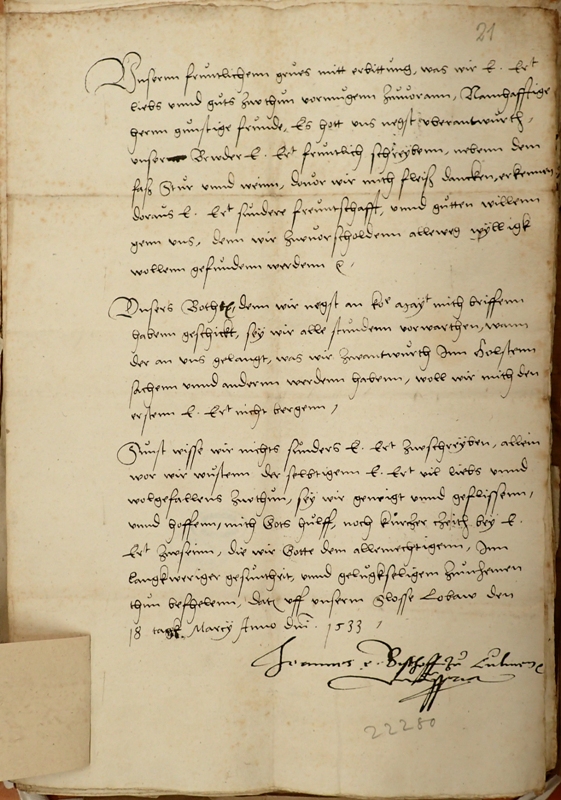 21
Unsernn fruntlichenn grues mitt erbittung, was wir E. Ert
liebs unnd guts zwthun vormugenn zuuorann, Namhafftige
hernn gunstige freunde, Es hott uns negst uberantwurth
unser Bruder E. Ert fruntlich schreybenn, nebenn dem
faß Stur unnd weinn, douor wir mich fleiß dancken, erkennen
doraus E. Ert sundere freuntschafft, unnd gutten willenn
genn uns, denn wir zwuorscholdenn alleweg wylligk
wollenn gefundenn werdenn
Unsers Bothen, denn wir negst an ko mayt mich briffenn
habenn geschickt, sey wir alle stundenn vorwarthen, wann
der an uns gelangt, was wir zwantwurth Inn Holstenn
sachenn unnd andernn werdenn habenn, woll wir mich den
erstenn E. Ert nicht bergenn,
Sunst wisse wir nichts sunders E. Ert zwschreyben, allein
wor wir wustenn der selbtigenn E. Ert vil liebs unnd
wolgefallens zwthun, sey wir geneigt unnd geflissenn,
unnd hoffenn, mich Gots hulff, noch kurtzer czeith bey E.
Ert zwseinn, die wir Gotte dem allmechtigenn, Inn
langkweriger gesuntheit, unnd gelugkseligem
thun befhelenn, Dat uff unserm Slosse Lobaw den
18 tagk Marcy Anno dni 1533,
Joannes e. Bisthoff zu Culmen
22280